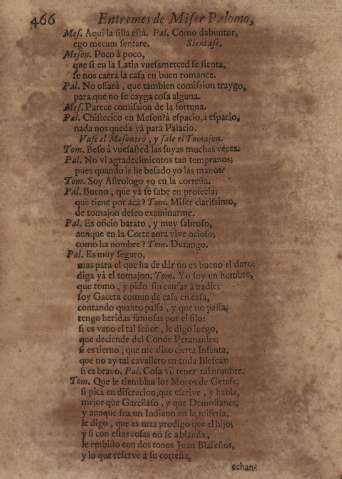 466 Entremes de Miser Palomo,
Mes. Aqui la silla está. Pal. Como dabuntur,
ego mecum sentare. Sientase.
Meson. Poco à poco,
que si en la Latin vuesamerced se sienta,
se nos caerà la casa en buen romance.
Pal. No osarà, que tambien comission traygo,
para que no se cayga cosa alguna.
Mes. Parece comission de la fortuna.
Pal. Chistecico en Meson? à espacio, à espacio,
nada nos queda yà para Palacio.
Vase el Mesonero, y sale el Tomajon.
Tom. Beso à vuesasted las suyas muchas veces.
Pal. No vì agradecimientos tan tempranos;
pues quando le he besado yo las manos?
Tom. Soy Astrologo yo en la cortesia.
Pal. Bueno, que yà se sabe en profecia;
què tiene por acà? Tom. Miser clarissimo,
de tomajon deseo examinarme.
Pal. Es oficio barato, y muy sabroso,
aunque en la Corte aora vive ocioso;
como ha nombre? Tom. Durango.
Pal. Es muy seguro,
mas para el que ha de dàr no es bueno el duro:
diga yà el tomajon. Tom. Yo soy un hombre,
que tomo, y pido sin cansar à nadie:
soy Gaceta comun de casa en casa,
contando quanto passa, y que no passa;
tengo heridas famosas por el filo:
si es vano el tal señor, le digo luego,
que deciende del Conde Peranzules;
si es tierno, que me dixo cierta Infanta,
que no ay tal cavallero en toda
si es bravo. Pal. Cosa vil tener tal nombre.
Tom. Que le tiemblan los Moros de Getafe;
si pica en discrecion, que escrive, y habla,
mejor que Garcilaso, y que Demostenes;
y aunque sea un Indiano en la miseria,
le digo, que es mas prodigo que el hijo,
y si con estas cosas no se ablanda,
le embisto con dos tonos Juan Blaseños,
y lo que reserve à su cortesia,
echan-